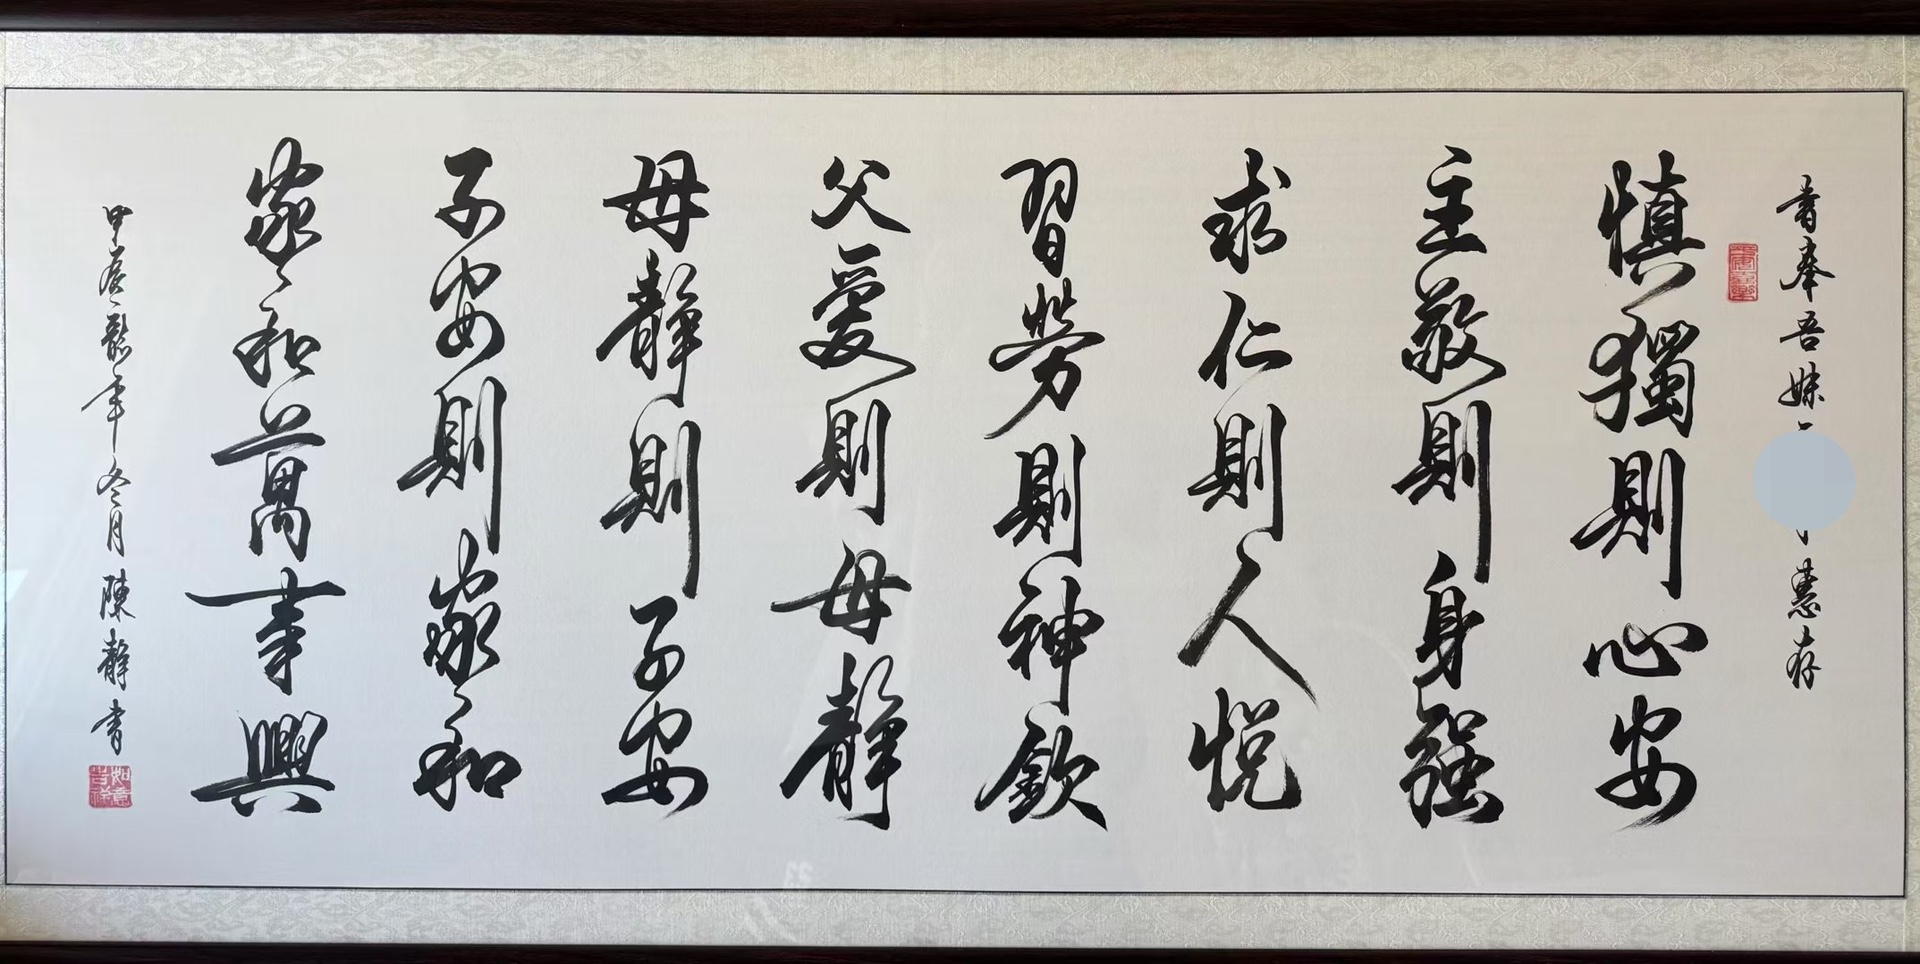 书奉吾妹
慧存
慎獨則心安
主敬則身強
求仁則人悅
習勞則神欽
父愛則母靜
母靜則子安
子安則家和
家和萬事興
甲辰龍年冬月陳靜書
如意吉祥